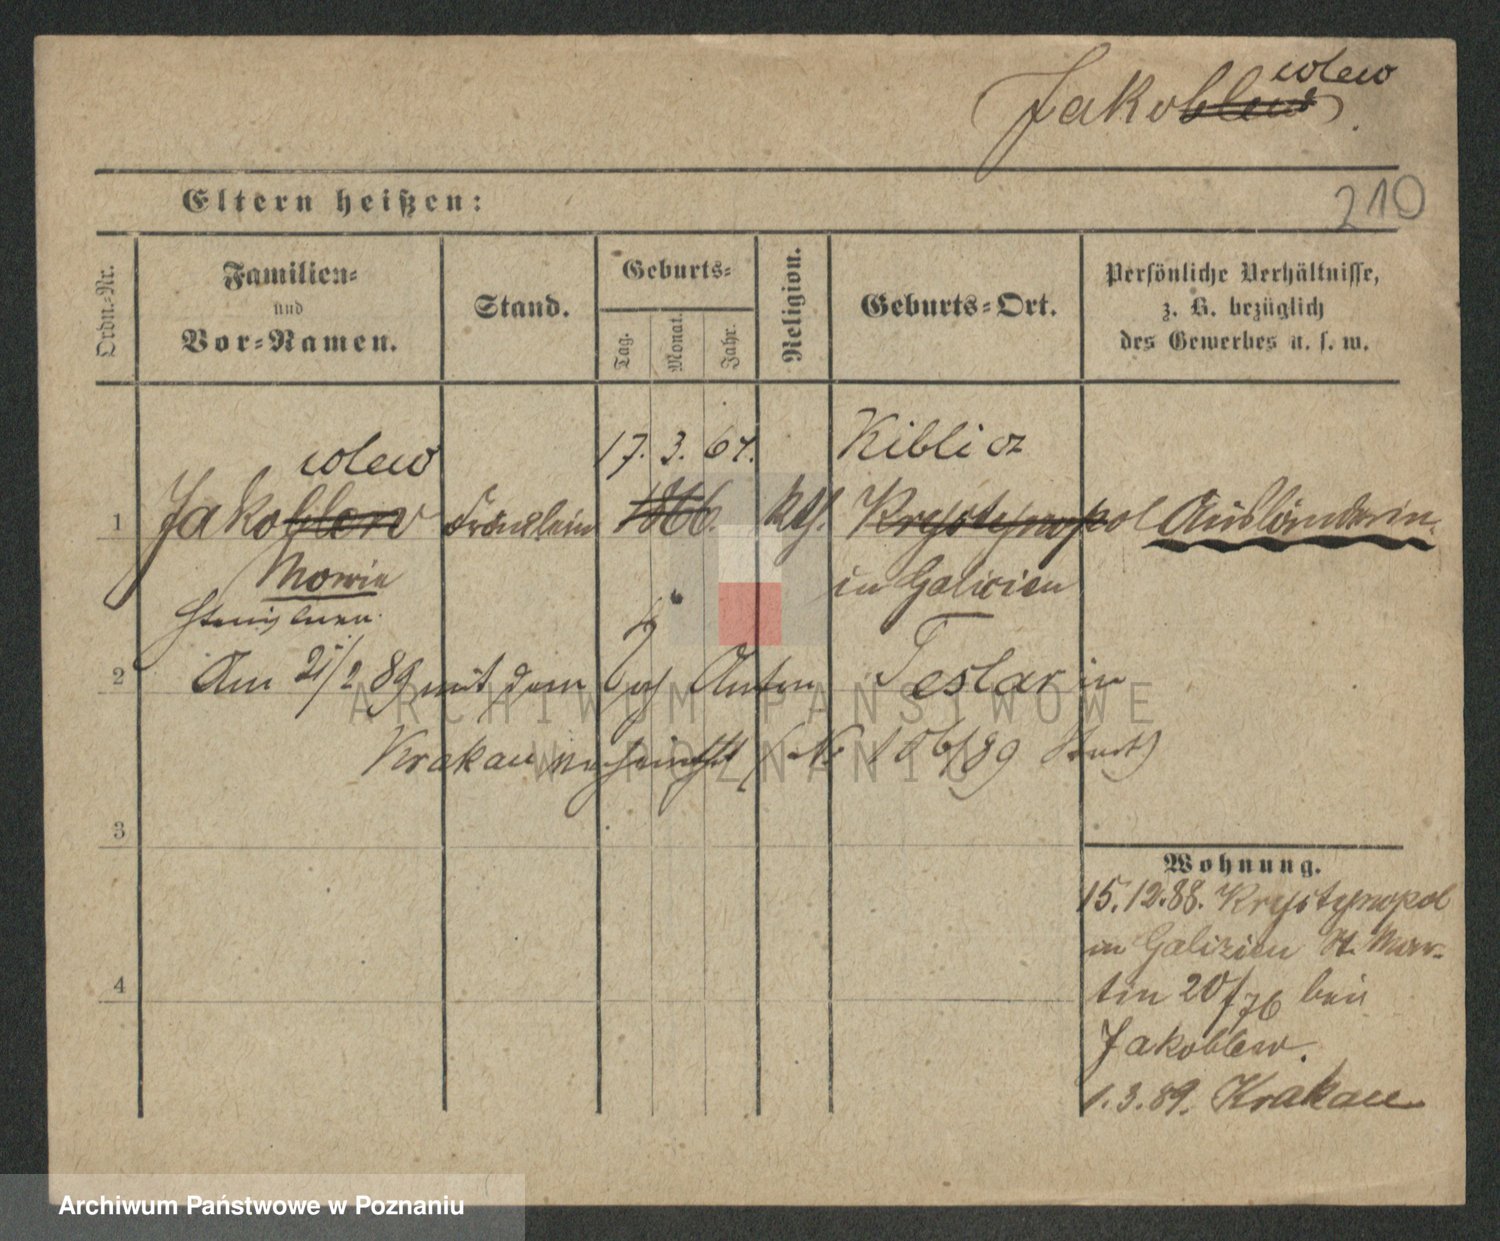 wlew
Jakoblew
210
Eltern heißen:
Ordn.-Nr.
Familien-
und
Vor-Namen.
Stand.
Geburts-
Tag.
Monat.
Jahr.
Religion.
Geburts-Ort.
Persönliche Verhältnisse,
z. B. bezüglich
des Gewerbes u. s. w.
wlew 17. 3. 64. Kiblicz
1 Jakoblew Fräulein 1866. kgl. Krystynopol Ausländerin
Marie in Galicien
2 Am 21/2 89 mit dem Anton Teslar in
Krakau verheirathet (No 106/89 Stadt)
3
4
Wohnung.
15.12.88. Krystynopol
in Galizien St. Mar-
tin 20/76 bei
Jakoblew.
1.3.89. Krakau
ARCHIWUM PAŃSTWOWE
W POZNANIU
Archiwum Państwowe w Poznaniu